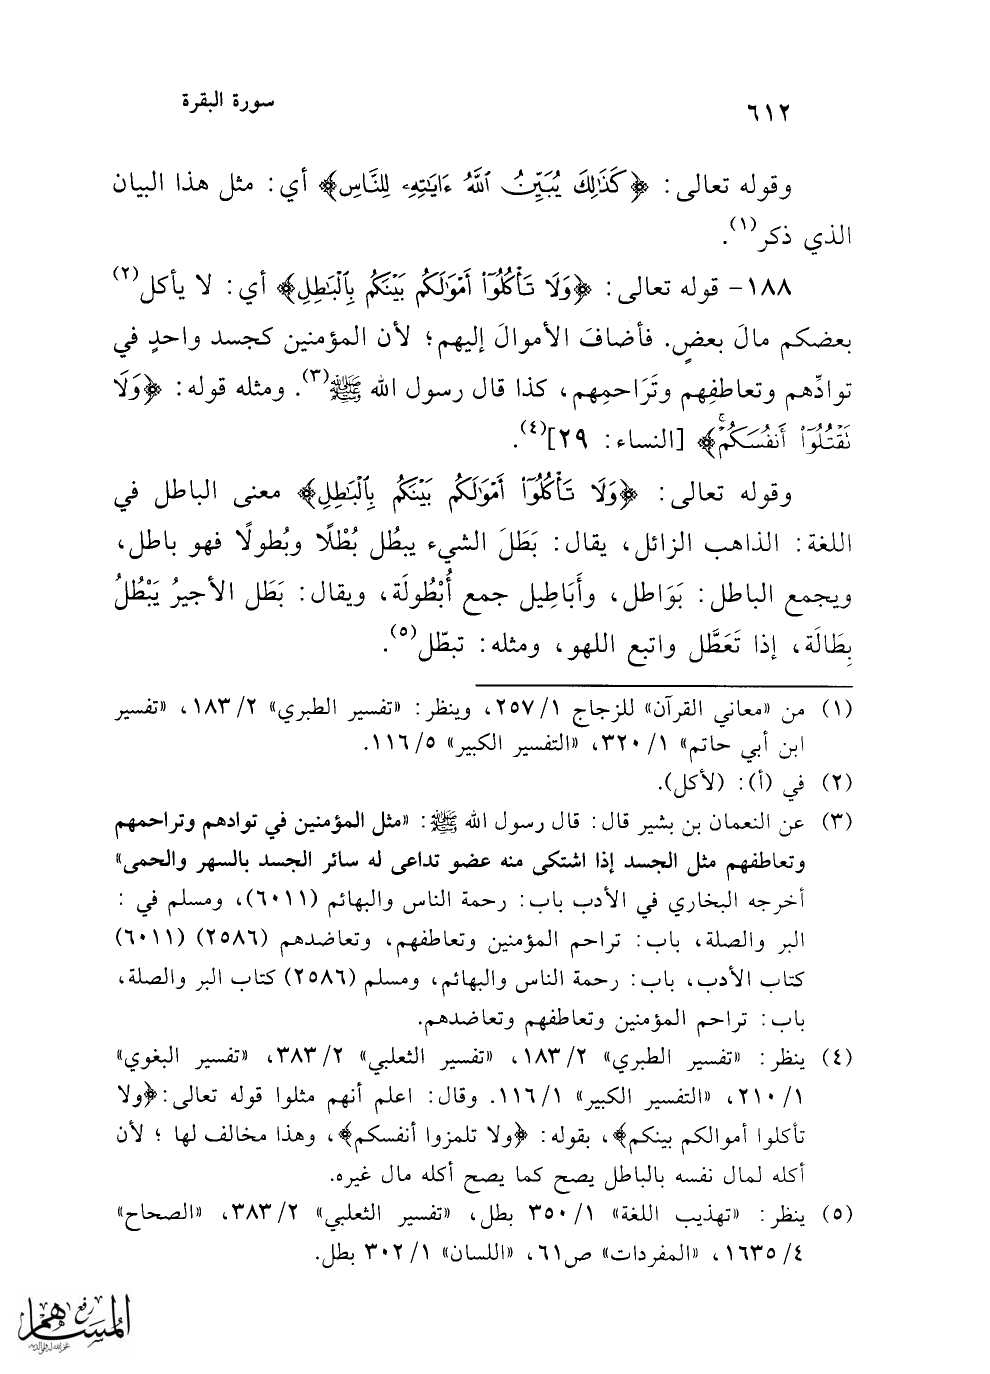 ٦١٢ سورة البقرة
وقوله تعالى: ﴿كَذَٰلِكَ يُبَيِّنُ ٱللَّهُ ءَايَٰتِهِۦ لِلنَّاسِ﴾ أي: مثل هذا البيان
الذي ذكر(١).
١٨٨- قوله تعالى: ﴿وَلَا تَأْكُلُوٓا۟ أَمْوَٰلَكُم بَيْنَكُم بِٱلْبَٰطِلِ﴾ أي: لا يأكل(٢)
بعضكم مالَ بعضٍ. فأضافَ الأموالَ إليهم؛ لأن المؤمنين كجسد واحدٍ في
توادِّهم وتعاطفِهم وتَرَاحمِهم، كذا قال رسول الله ﷺ(٣). ومثله قوله: ﴿وَلَا
تَقْتُلُوٓا۟ أَنفُسَكُمْ ۚ﴾ [النساء: ٢٩](٤).
وقوله تعالى: ﴿وَلَا تَأْكُلُوٓا۟ أَمْوَٰلَكُم بَيْنَكُم بِٱلْبَٰطِلِ﴾ معنى الباطل في
اللغة: الذاهب الزائل، يقال: بَطَلَ الشيء يبطُل بُطْلًا وبُطولًا فهو باطل،
ويجمع الباطل: بَوَاطل، وأَبَاطِيل جمع أُبْطُولَة، ويقال: بَطَل الأجيرُ يَبْطُلُ
بِطَالَة، إذا تَعَطَّل واتبع اللهو، ومثله: تبطّل(٥).
(١) من «معاني القرآن» للزجاج ١/ ٢٥٧، وينظر: «تفسير الطبري» ٢/ ١٨٣، «تفسير
ابن أبي حاتم» ١/ ٣٢٠، «التفسير الكبير» ٥/ ١١٦.
(٢) في (أ): (لأكل).
(٣) عن النعمان بن بشير قال: قال رسول الله ﷺ: «مثل المؤمنين في توادهم وتراحمهم
وتعاطفهم مثل الجسد إذا اشتكى منه عضو تداعى له سائر الجسد بالسهر والحمى»
أخرجه البخاري في الأدب باب: رحمة الناس والبهائم (٦٠١١)، ومسلم في :
البر والصلة، باب: تراحم المؤمنين وتعاطفهم، وتعاضدهم (٢٥٨٦) (٦٠١١)
كتاب الأدب، باب: رحمة الناس والبهائم، ومسلم (٢٥٨٦) كتاب البر والصلة،
باب: تراحم المؤمنين وتعاطفهم وتعاضدهم.
(٤) ينظر: «تفسير الطبري» ٢/ ١٨٣، «تفسير الثعلبي» ٢/ ٣٨٣، «تفسير البغوي»
١/ ٢١٠، «التفسير الكبير» ١/ ١١٦. وقال: اعلم أنهم مثلوا قوله تعالى:﴿ولا
تأكلوا أموالكم بينكم﴾، بقوله: ﴿ولا تلمزوا أنفسكم﴾، وهذا مخالف لها ؛ لأن
أكله لمال نفسه بالباطل يصح كما يصح أكله مال غيره.
(٥) ينظر: «تهذيب اللغة» ١/ ٣٥٠ بطل، «تفسير الثعلبي» ٢/ ٣٨٣، «الصحاح»
٤/ ١٦٣٥، «المفردات» ص٦١، «اللسان» ١/ ٣٠٢ بطل.
رفع
المساهم